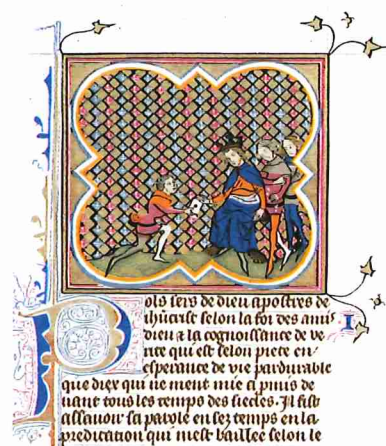 Pols sers de dieu apostres de
ihucrist selon la foi des amis
dieu ⁊ la cognoissance de ve
rite qui est selon piete en
esperance de vie pardurable
que diex qui ne ment mie a pmis de
uant tous les temps des siecles. Il fist
assauoir sa parole en sez temps en la
predication qui mest baillee selonc le
I